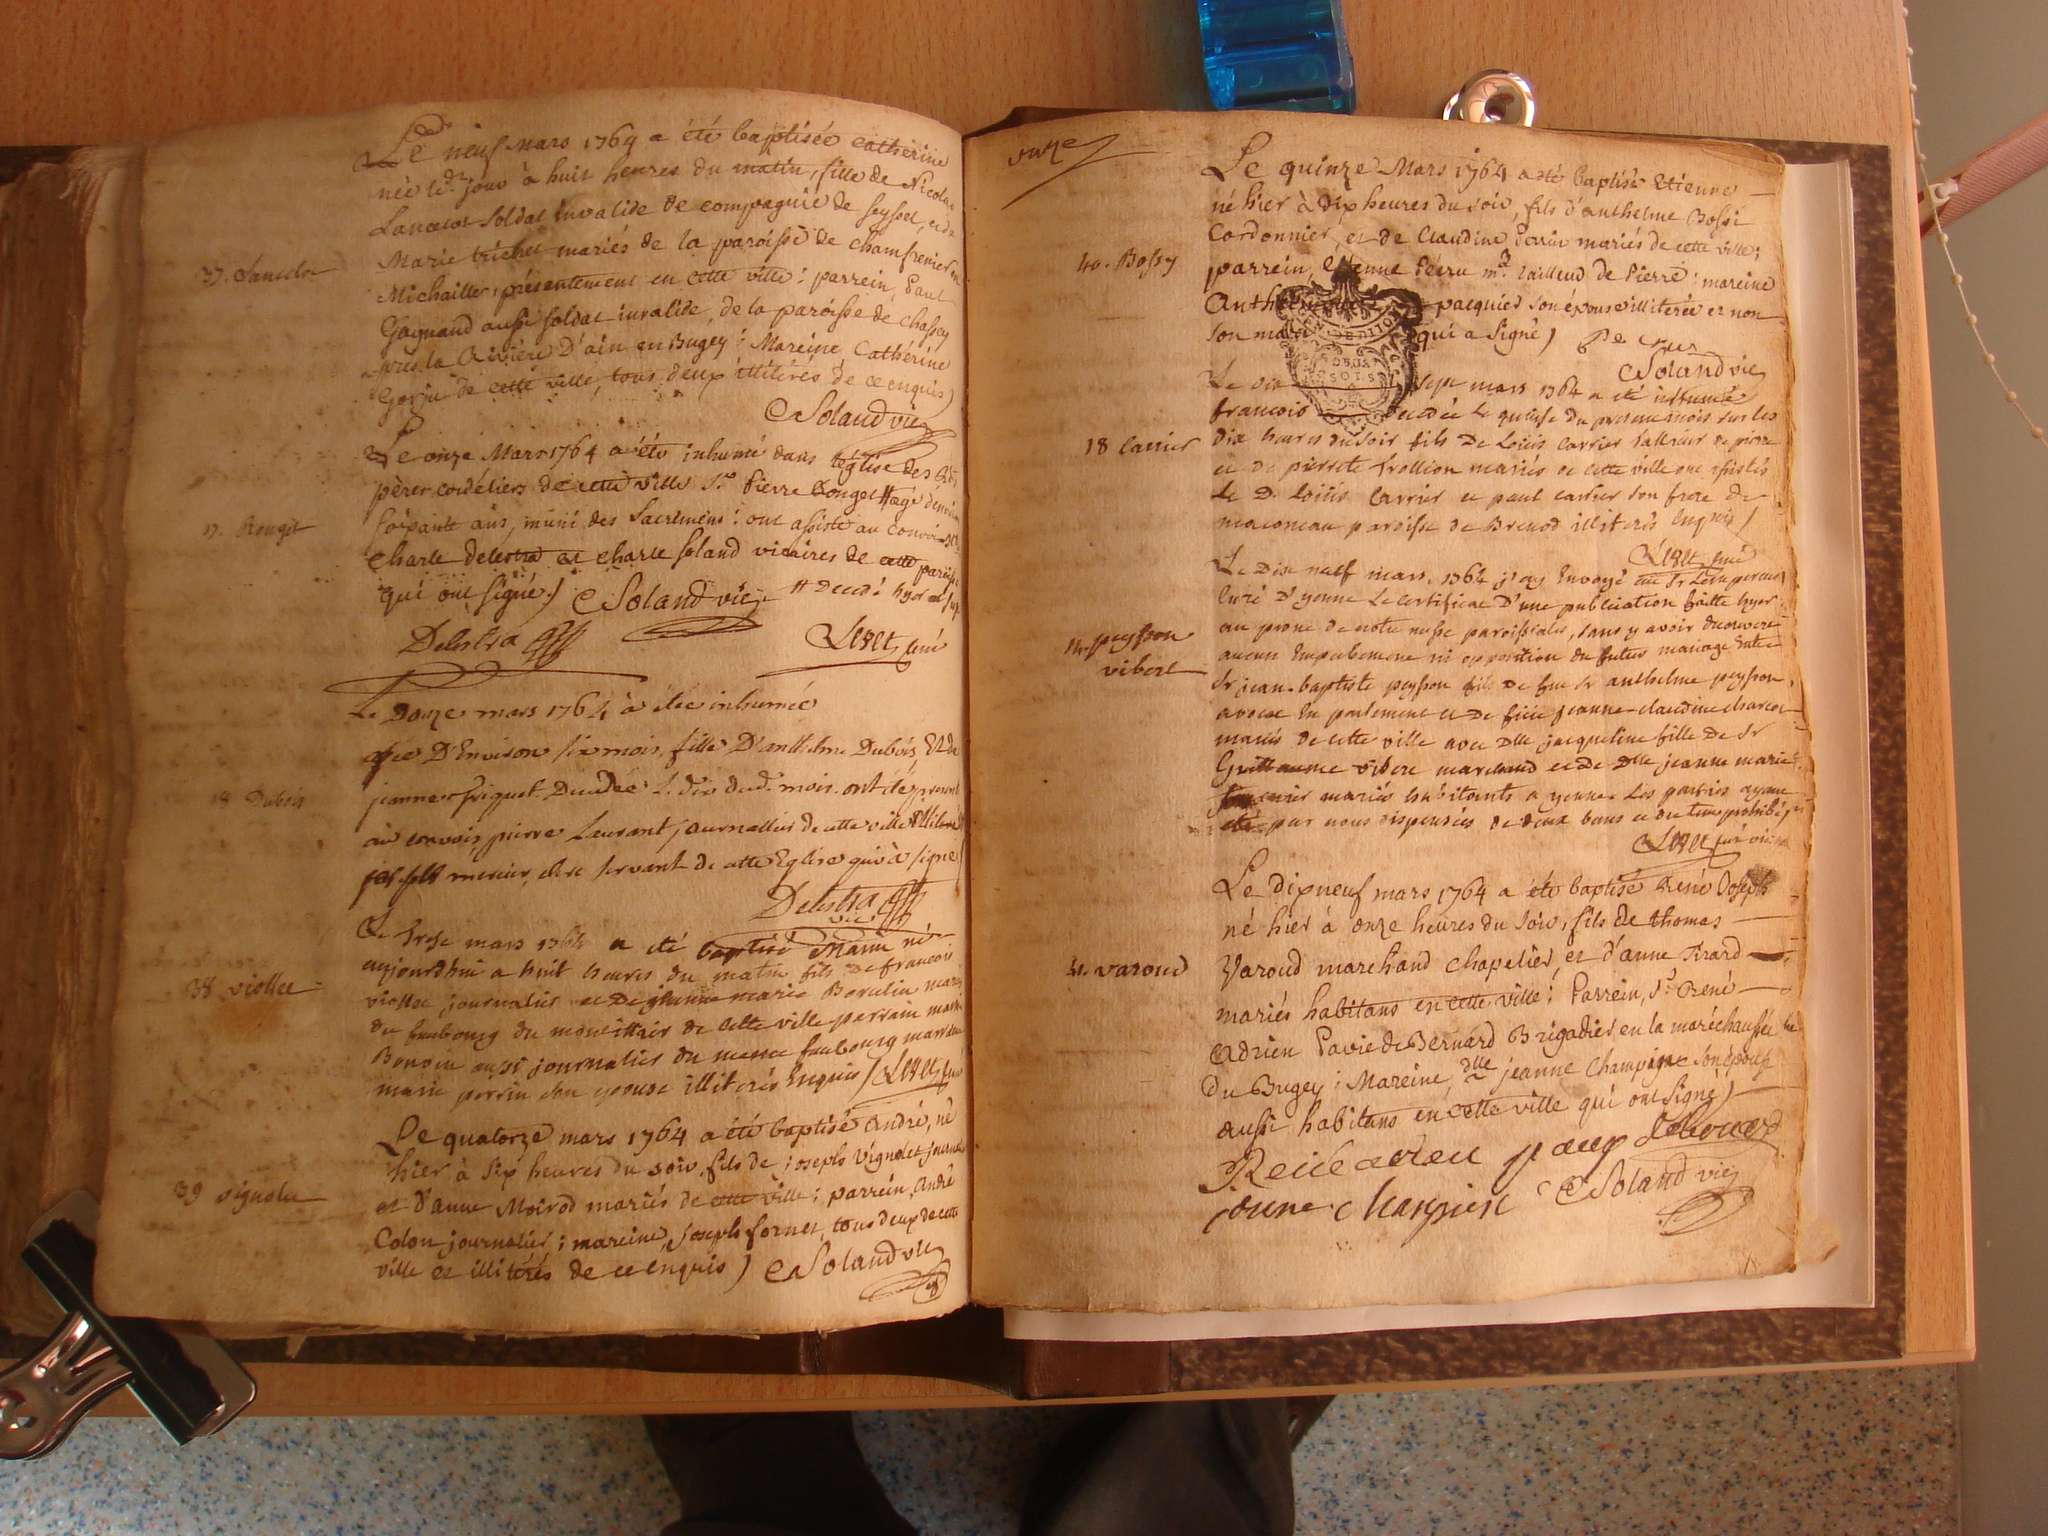 Le neuf Mars 1764 a été baptisée Catherine
née le dt jour à huit heures du matin, fille de Nicolas
Lancelot soldat invalide de compagnie de Seyssel, et de
Marie trichet mariés de la paroisse de Chamfremier en
37. Lancelot
Michaille, présentement en cette ville : parrein, Paul
Gagnand aussi soldat invalide, de la paroisse de Chassey
près la Rivière D'ain en Bugey : Mareine, Cathérine
Gorju de cette ville, tous deux illiterés de ce enquis)
CSoland vic
Le onze Mars 1764 a été inhumé dans l'église des RR
pères cordéliers de cette ville Sr Pierre Rouget # agé d'environ
17. Rouget
soixante ans, muni des Sacremens : ont assisté au convoi
Charle delestra et Charle Soland vicaires de cette paroisse
qui ont signé.) CSoland vic # decedé hyer
Delestra
curé
Le Douze mars 1764 à étée inhumée
agée D'Environ six mois, fille D'anthelme Dubois, Et de
18 Dubois
jeanne friquet Decedée Le dix dud. mois. ont été present
au convois, pierre Laurant journallier de cette ville illiteré
mercier, clerc servant de cette Eglise qui à signé
Delestra
vic
Le trese mars 1764 a été baptisé né
aujourdhui a huit heures du matin fils de francois
38 viollet
viollet journalier et de jeanne marie mariés
du faubourg du de cette ville parrain
aussi journalier du meme faubourg marraine
marie perrin son epouse illiterés Enquis / curé
Le quatorze mars 1764 a été baptisé André, né
hier à six heures du soir, fils de joseph Vignolet journalier
39 vignolet
et d'anne Moirod mariés de cette ville ; parrein, André
Colon journalier ; mareine, Josephe fornet, tous deux de cette
ville et illiterés de ce enquis) CSoland vic
onze
Le quinze Mars 1764 a été baptisé Etienne
né hier à dix heures du soir, fils d'anthelme Bossi
Cordonnier, et de Claudine perrin mariés de cette ville ;
40. Bossy
parrein, Etienne tailleur de Pierre : mareine
Anth pacquier son épouse illiterée et non
son mari qui a signé)
CSoland vic
Le dix sept mars 1764 a été inhumé
francois decedé Le quinse du present mois sur les
18 Carrier
dix heures du soir fils de Loüis Carrier tallieur de pierre
et de pierrete trollion mariés de cette ville ont assistés
Le D. Loüis Carrier et paul carrier son frere de
paroisse de Brenod illiterés Enquis /
curé
Le Dix neuf mars, 1764 j'ay Envoyé au Sr
curé D'yenne Le certificat D'une publication faitte hyer
au prone de notre messe paroissiale, sans y avoir decouvert
14. peysson
vibert
aucun Empechement ni opposition du futur mariage Entre
Sr jean-baptiste peysson fils de feu Sr anthelme peysson,
avocat En parlement et De jeanne claudine
mariés de cette ville avec Dlle jacqueline fille De Sr
Guillaume vibert marchand et De Dlle jeanne marie
mariés habitants a yenne. Les parties ayant
par nous dispensées de deux bans et du tems prohibé
curé
Le dixneuf mars 1764 a été baptisé René Joseph
né hier à onze heures du soir, fils de thomas
41. varoud
Varoud marchand chapelier, et d'anne Tirard
mariés habitans en cette ville ; Parrein, Sr René
Adrien Pavie de Bernard Brigadier, en la maréchaussée
du Bugey ; Mareine, dlle jeanne Champine son épouse
aussi habitans en cette ville qui ont signé)
CSoland vic